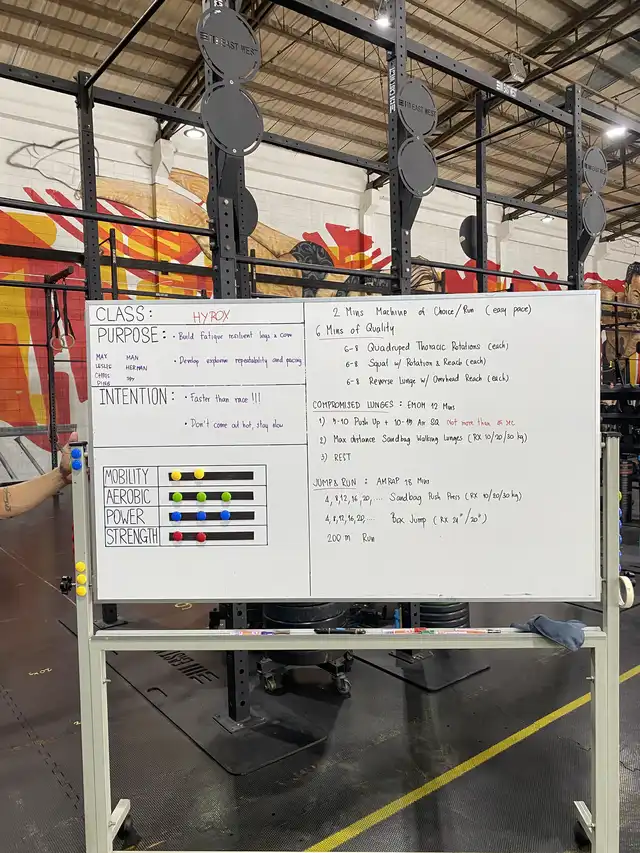 EAST WEST
EAST WEST
CLASS: HYROX
PURPOSE: • Build Fatigue resilient legs & core
• Develop explosive repeatability and pacing
MAX MAN
LESLIE HERMAN
CHRIS
INTENTION: • Faster than race !!!
• Don't come out hot, stay slow
MOBILITY
AEROBIC
POWER
STRENGTH
2 Mins Machine of Choice/Run (easy pace)
6 Mins of Quality
6-8 Quadruped Thoracic Rotations (each)
6-8 Squat w/ Rotation & Reach (each)
6-8 Reverse Lunge w/ Overhead Reach (each)
COMPROMISED LUNGES: EMOM 12 Mins
1) 5-10 Push Up + 10-15 Air SQ Not more than sec
2) Max distance Sandbag Walking Lunges (RX 10/20/30 kg)
3) REST
JUMP & RUN: AMRAP 18 Mins
4, 8, 12, 16, 20, .... Sandbag Push Press (RX 10/20/30 kg)
4, 8, 12, 16, 20, .... Box Jump (RX 24"/20")
200 m Run